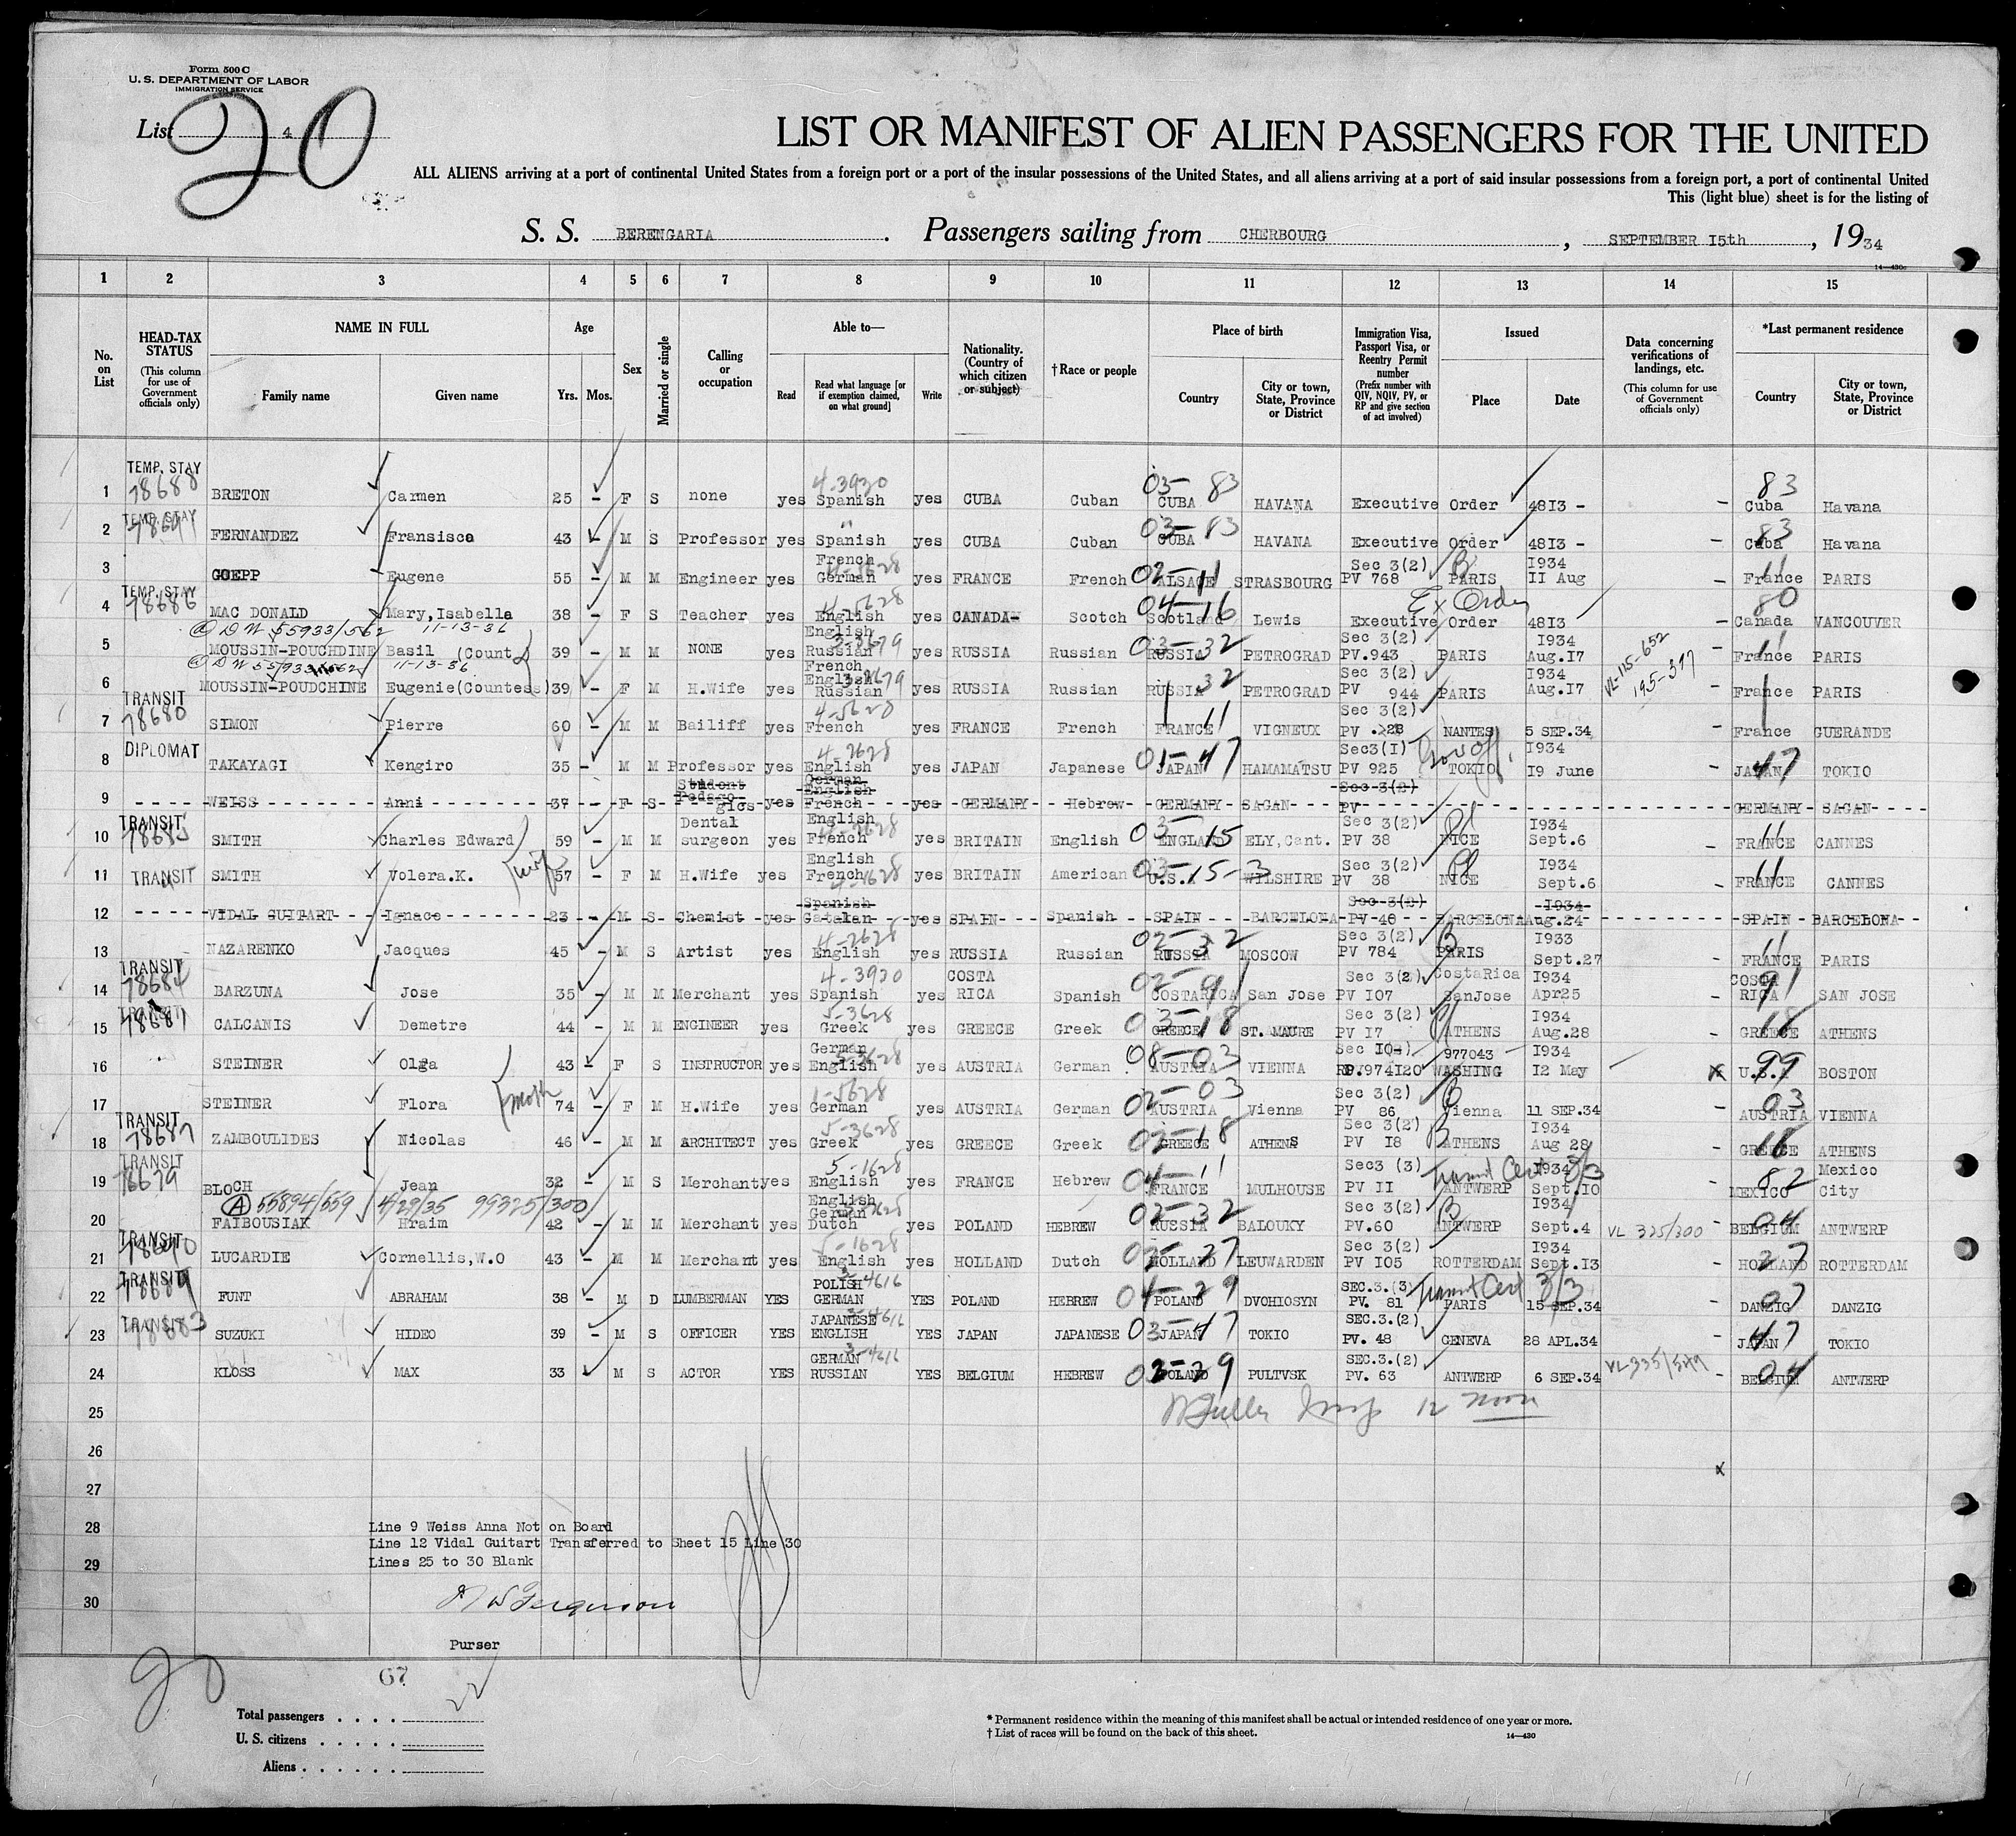 Form 500 C
U. S. DEPARTMENT OF LABOR
IMMIGRATION SERVICE
List 4
20
LIST OR MANIFEST OF ALIEN PASSENGERS FOR THE UNITED
ALL ALIENS arriving at a port of continental United States from a foreign port or a port of the insular possessions of the United States, and all aliens arriving at a port of said insular possessions from a foreign port, a port of continental United
This (light blue) sheet is for the listing of
S. S. BERENGARIA. Passengers sailing from CHERBOURG, SEPTEMBER I5th, 1934
14—430c
1 2 3 4 5 6 7 8 9 10 11 12 13 14 15
No. on List
HEAD-TAX STATUS (This column for use of Government officials only)
NAME IN FULL Family name Given name
Age Yrs. Mos.
Sex
Married or single
Calling or occupation
Able to— Read Read what language [or if exemption claimed, on what ground] Write
Nationality. (Country of which citizen or subject)
†Race or people
Place of birth Country City or town, State, Province or District
Immigration Visa, Passport Visa, or Reentry Permit number (Prefix number with QIV, NQIV, PV, or RP and give section of act involved)
Issued Place Date
Data concerning verifications of landings, etc. (This column for use of Government officials only)
*Last permanent residence Country City or town, State, Province or District
1 TEMP. STAY 78688 BRETON Carmen 25 – F S none yes 4-3920 Spanish yes CUBA Cuban 03- 83 CUBA HAVANA Executive Order 48I3 - – 83 Cuba Havana
2 TEMP. STAY FERNANDEZ Fransisco 43 – M S Professor yes " Spanish yes CUBA Cuban 03- 83 CUBA HAVANA Executive Order 48I3 - – 83 Cuba Havana
3 GOEPP Eugene 55 – M M Engineer yes French German yes FRANCE French 02-11 ALSACE STRASBOURG Sec 3(2) PV 768 PARIS I934 II Aug – 11 France PARIS
4 TEMP. STAY 78686 MAC DONALD Mary,Isabella 38 – F S Teacher yes 4-5628 English yes CANADA- Scotch 04-16 Scotland Lewis Executive Order Ex Order 48I3 – 80 Canada VANCOUVER
DW 55933/562 11-13-36
5 MOUSSIN-POUCHDINE Basil (Count) 39 – M M NONE yes English Russian yes RUSSIA Russian 03-32 RUSSIA PETROGRAD Sec 3(2) PV.943 PARIS I934 Aug.I7 – 11 France PARIS
DW 55933/562 11-13-36
6 MOUSSIN-POUDCHINE Eugenie(Countess) 39 – F M H.Wife yes French English Russian yes RUSSIA Russian RUSSIA 32 PETROGRAD Sec 3(2) PV 944 PARIS I934 Aug.I7 VL-115-652 195-317 – France PARIS
7 TRANSIT 78680 SIMON Pierre 60 – M M Bailiff yes 4-5628 French yes FRANCE French FRANCE 11 VIGNEUX Sec 3(2) PV .28 NANTES 5 SEP.34 – France GUERANDE
8 DIPLOMAT TAKAYAGI Kengiro 35 – M M Professor yes 4-2628 English yes JAPAN Japanese 01-47 JAPAN HAMAMATSU Sec3(I) PV 925 TOKIO I934 I9 June – 47 JAPAN TOKIO
9 WEISS Anni 37 – F S Student Pedago- gics yes German English French yes GERMANY Hebrew GERMANY SAGAN Sec 3(2) PV GERMANY SAGAN
10 TRANSIT SMITH Charles Edward 59 – M M Dental surgeon yes English French yes BRITAIN English 03-15 ENGLAND ELY,Cant. Sec 3(2) PV 38 NICE I934 Sept.6 – 11 FRANCE CANNES
11 TRANSIT SMITH Volera.K. wife 57 – F M H.Wife yes English French yes BRITAIN American 03-15 U.S.A WILSHIRE Sec 3(2) PV 38 NICE I934 Sept.6 – 11 FRANCE CANNES
12 VIDAL GUITART Ignace 23 – M S Chemist yes Spanish Catalan yes SPAIN Spanish SPAIN BARCELONA Sec 3(2) PV 40 BARCELONA I934 Aug.24 SPAIN BARCELONA
13 NAZARENKO Jacques 45 M S Artist yes 4-2628 English yes RUSSIA Russian 02-32 RUSSIA MOSCOW Sec 3(2) PV 784 PARIS I933 Sept.27 11 FRANCE PARIS
14 TRANSIT 78684 BARZUNA Jose 35 – M M Merchant yes 4-3920 Spanish yes COSTA RICA Spanish 02-91 COSTARICA San Jose Sec 3(2) PV I07 CostaRica SanJose I934 Apr25 – 91 COSTA RICA SAN JOSE
15 TRANSIT 78681 CALCANIS Demetre 44 – M M ENGINEER yes 5-3628 Greek yes GREECE Greek 03-18 GREECE ST. MAURE Sec 3(2) PV I7 ATHENS I934 Aug.28 – 18 GREECE ATHENS
16 STEINER Olga 43 – F S INSTRUCTOR yes German English yes AUSTRIA German 08-03 AUSTRIA VIENNA Sec IO RP.974I20 977043 WASHING I934 I2 May x 99 U.S.A BOSTON
17 STEINER Flora moth 74 – F M H.Wife yes 1-5628 German yes AUSTRIA German 02-03 AUSTRIA Vienna Sec 3(2) PV 86 Vienna 11 SEP.34 – 03 AUSTRIA VIENNA
18 TRANSIT 78687 ZAMBOULIDES Nicolas 46 – M M ARCHITECT yes 5-3628 Greek yes GREECE Greek 02-18 GREECE ATHENS Sec 3(2) PV I8 ATHENS I934 Aug 28 – 18 GREECE ATHENS
19 TRANSIT 78679 BLOCH Jean 32 – M S Merchant yes 5-1628 English yes FRANCE Hebrew 04-11 FRANCE MULHOUSE Sec3 (3) PV II Transit Cert 3/3 ANTWERP I934 Sept.I0 – 82 MEXICO Mexico City
(A) 55894/559 4/29/35 99325/300
20 FAIBOUSIAK Hraim 42 – M M Merchant yes English German Dutch yes POLAND HEBREW 02-32 RUSSIA BALOUKY Sec 3(2) PV.60 ANTWERP I934 Sept.4 VL 325/300 – 04 BELGIUM ANTWERP
21 TRANSIT 78690 LUCARDIE Cornellis,W.O 43 – M M Merchant yes 5-1628 English yes HOLLAND Dutch 02-27 HOLLAND LEUWARDEN Sec 3(2) PV I05 ROTTERDAM I934 Sept.I3 – 27 HOLLAND ROTTERDAM
22 TRANSIT 78689 FUNT ABRAHAM 38 – M D LUMBERMAN YES POLISH GERMAN YES POLAND HEBREW 04-29 POLAND DVOHIOSYN SEC.3.(3) PV. 81 Transit Cert 3/3 PARIS 15 SEP.34 – 07 DANZIG DANZIG
23 TRANSIT 78683 SUZUKI HIDEO 39 – M S OFFICER YES JAPANESE ENGLISH YES JAPAN JAPANESE 03-47 JAPAN TOKIO SEC.3.(2) PV. 48 GENEVA 28 APL.34 – 47 JAPAN TOKIO
24 KLOSS MAX 33 M S ACTOR YES GERMAN RUSSIAN YES BELGIUM HEBREW 03-29 POLAND PULTVSK SEC.3.(2) PV. 63 ANTWERP 6 SEP.34 – 04 BELGIUM ANTWERP
25 12 noon
26
27
28 Line 9 Weiss Anna Not on Board
Line 12 Vidal Guitart Transferred to Sheet 15 Line 30
29 Lines 25 to 30 Blank
30 Ferguson
Purser
20
67
22
Total passengers . . . .
U. S. citizens . . . . .
Aliens . . . . . .
* Permanent residence within the meaning of this manifest shall be actual or intended residence of one year or more.
† List of races will be found on the back of this sheet.
14—430